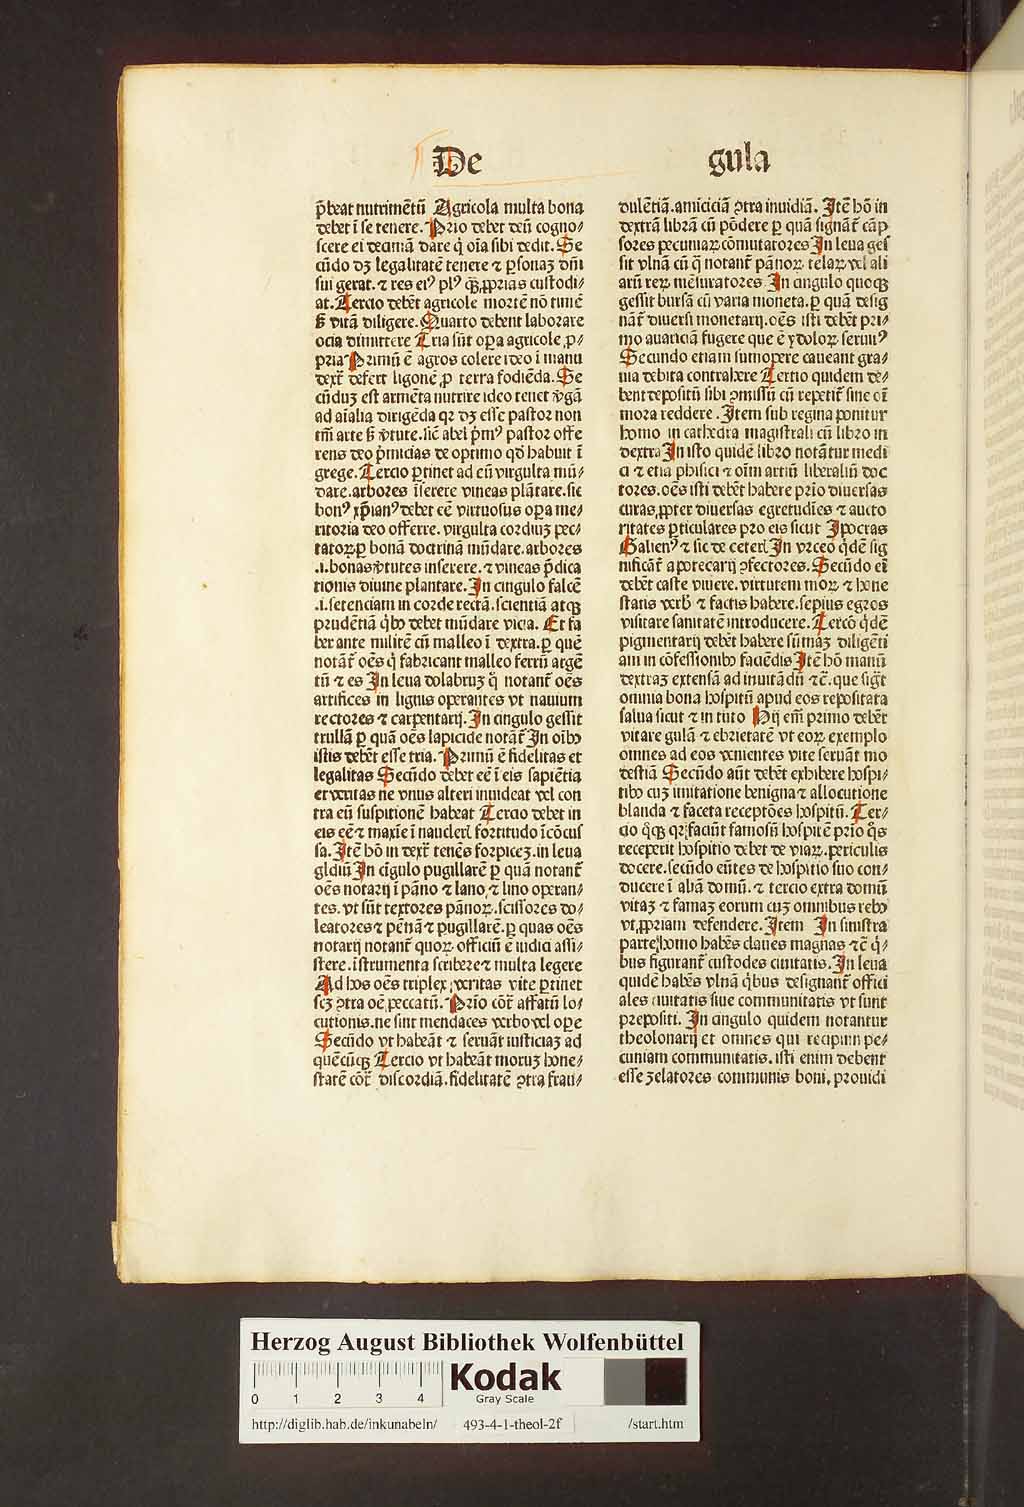 De gula
p̄beat nutrimētū Agricola multa bona
debet ī se tenere. Prīo debet deū cogno⸗
scere ei decimā dare q̇ oīa sibi dedit. Se
cūdo dꝫ legalitatē tenere ⁊ ꝑsonaꝫ dn̄i
sui gerat. ⁊ res eiꝰ plꝰ qꝫ ꝓprias custodi⸗
at. Tercio debēt agricole mortē nō timē
sꝫ vitā diligere. Quarto debent laborare
ocia dimittere Tria sūt oꝑa agricole ꝓ⸗
pria Primū ē agros colere ideo ī manu
dext̄ defert ligonē ꝓ terra fodiēda. Se
cūduꝫ est armēta nutrire ideo tenet v̄gā
ad aīalia dirigēda qr dꝫ esse pastor non
tm̄ arte sꝫ v̄tute. sic̄ abel p̄mꝰ pastor offe
rens deo p̄micias de optimo qd̄ habuit ī
grege. Tercio ꝑtinet ad eū virgulta mū⸗
dare. arbores īserere vineas plātare. sic
bonꝰ xp̄ianꝰ debet eē virtuosus oꝑa me⸗
ritoria deo offerre. virgulta cordiuꝫ pec⸗
catoꝝ ꝑ bonā doctrinā mūdare. arbores
.i. bonas v̄tutes inserere. ⁊ vineas p̄dica
tionis diuine plantare. In cingulo falcē
.i. setenciam in corde rectā. scientiā atqꝫ
prudētiā qb̄ꝰ debet mūdare vicia. Et fa
ber ante militē cū malleo ī dextra. ꝑ quē
notāt̄ oēs q̇ fabricant malleo ferrū argē
tū ⁊ es In leua dolabruꝫ q̊ notant̄ oēs
artifices in lignis operantes vt nauium
rectores ⁊ carpentarij. In cingulo gessit
trullā ꝑ quā oēs lapicide notāt̄ In oībꝰ
istis debēt esse tria. Primū ē fidelitas et
legalitas Secūdo debet eē ī eis sapiētia
et veritas ne vnus alteri inuideat vel con
tra eū suspitionē habeat Tercio debet in
eis eē ⁊ maxīe ī nauclerꝭ fortitudo īcōcus
sa. Itē hō in dext̄ tenēs forpiceꝫ. in leua
gldiū In cīgulo pugillarē ꝑ quā notant̄
oēs notarij ī pāno ⁊ lano, ⁊ lino operan⸗
tes. vt sūt textores pānoꝝ. scissores do⸗
leatores ⁊ pēnā ⁊ pugillarē. ꝑ quas oēs
notarij notant̄ quoꝝ officiū ē iudicia assi⸗
stere. īstrumenta scribere ⁊ multa legere
Ad hos oēs triplex veritas vite ꝑtinet
scꝫ ꝯtra oē peccatū. Prīo cōt̄ affatū lo⸗
cutionis. ne sint mendaces verbo vel oꝑe
Secūdo vt habeāt ⁊ seruāt iusticiaꝫ ad
quēcūqꝫ Tercio vt habeāt moruꝫ hone⸗
statē cōt̄ discordiā. fidelitatē ꝯtra frau⸗
dulētiā. amiciciā ꝯtra inuidiā. Itē hō in
dextrā librā cū pōdere ꝑ quā signāt̄ cāp
sores pecuniaꝝ cōmutatores In leua ges
sit vlnā cū q̄ notant̄ pānoꝝ telaꝝ vel ali
arū reꝝ mēsuratores In cingulo quoqꝫ
gessit bursā cū varia moneta. ꝑ quā desig
nāt̄ diuersi monetarij. oēs isti debēt pri⸗
mo auariciā fugere que ē ydoloꝝ seruiꝰ
Secundo etiam sumopere caueant gra⸗
uia debita contrahere Tertio quidem de⸗
bent depositū sibi ꝯmissū cū repetit̄ sine oī
mora reddere. Item sub regina ponitur
homo in cathedra magistrali cū libro in
dextra In isto quidē libro notātur medi
ci ⁊ etiā phisici ⁊ oīm artiū liberaliū doc
tores. oēs isti debēt habere prīo diuersas
curas ꝓpter diuersas egretudīes ⁊ aucto
ritates ꝑticulares pro eis sicut Ipocras
Galienꝰ ⁊ sic de ceterꝭ In vrceo q̇dē sig
nificāt̄ apotecarij ꝯfectores. Secūdo eī
debēt caste viuere. virtutem moꝝ ⁊ hone
statis verb̄ ⁊ factis habere. sepius egros
visitare sanitatē introducere. Tercō q̇dē
pigmentarij debēt habere sūmaꝫ diligēti
am in cōfessionibꝰ faciēdis Itē hō manū
dextraꝫ extensā ad inuitādū ⁊ cē. que sigt̄
omnia bona hospitū apud eos reposita
salua sicut ⁊ in tuto Hij em̄ primo debēt
vitare gulā ⁊ ebrietatē vt eoꝝ exemplo
omnes ad eos venientes vite seruāt mo
destiā Secūdo aūt debēt exhibere hospi⸗
tibꝰ cuꝫ imitatione benigna ⁊ allocutione
blanda ⁊ faceta receptōes hospitū. Ter⸗
cio q̇qꝫ qr faciūt famosū hospitē prīo q̊s
receperit hospitio debet de viaꝝ periculis
docere. secūdo eūtes de hospitio suo con⸗
ducere ī aliā domū. ⁊ tercio extra domū
vitaꝫ ⁊ famaꝫ eorum cuꝫ omnibus rebꝰ
vt ꝓpriam defendere. Item In sinistra
parte homo habēs claues magnas ⁊ cē q̇⸗
bus figurant̄ custodes ciuitatis. In leua
quidē habēs vlnā q̇bus designant̄ offici
ales ciuitatis siue communitatis vt sunt
prepositi. In cingulo quidem notantur
theolonarij et omnes qui recipiūt pe⸗
cuniam communitatis. isti enim debent
esse zelatores communis boni, prouidi
Herzog August Bibliothek Wolfenbüttel
0 1 2 3 4
Kodak
Gray Scale
http://diglib.hab.de/inkunabeln/ 493-4-1-theol-2f /start.htm